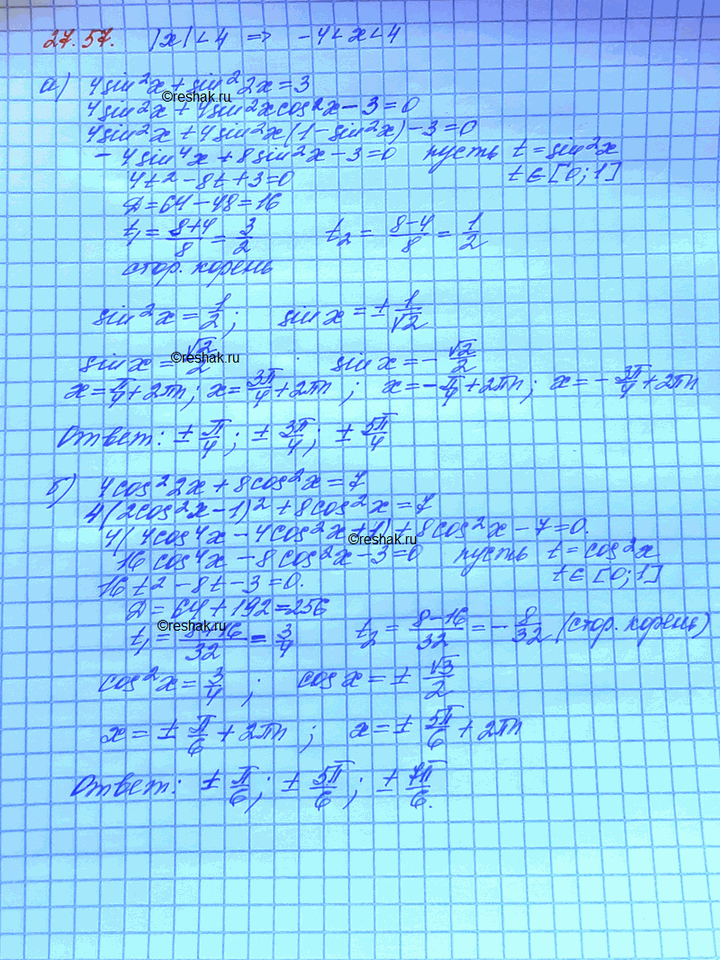 27.57. |x|<4 ⇒ -4<x<4
а) 4sin²x + sin²2x = 3
©reshak.ru
4sin²x + 4sin²xcos²x - 3 = 0
4sin²x + 4sin²x(1 - sin²x) - 3 = 0
-4sin⁴x + 8sin²x - 3 = 0 пусть t = sin²x
4t² - 8t + 3 = 0 t ∈ [0;1]
D = 64 - 48 = 16
t₁ = 8+4/8 = 3/2 t₂ = 8-4/8 = 1/2
стор. корень
sin²x = 1/2; sin x = ± 1/√2
sin x = √2/2; sin x = - √2/2
©reshak.ru
x = π/4 + 2πn; x = 3π/4 + 2πn; x = - π/4 + 2πn; x = - 3π/4 + 2πn
Ответ: ± π/4; ± 3π/4; ± 5π/4
б) 4cos²2x + 8cos²x = 7
4(2cos²x - 1)² + 8cos²x = 7
4(4cos⁴x - 4cos²x + 1) + 8cos²x - 7 = 0.
©reshak.ru
16cos⁴x - 8cos²x - 3 = 0 пусть t = cos²x
16t² - 8t - 3 = 0. t ∈ [0;1]
D = 64 + 192 = 256
©reshak.ru
t₁ = 8+16/32 = 3/4 t₂ = 8-16/32 = - 8/32 (стор. корень)
cos²x = 3/4; cos x = ± √3/2
x = ± π/6 + 2πn; x = ± 5π/6 + 2πn
Ответ: ± π/6; ± 5π/6; ± 7π/6.